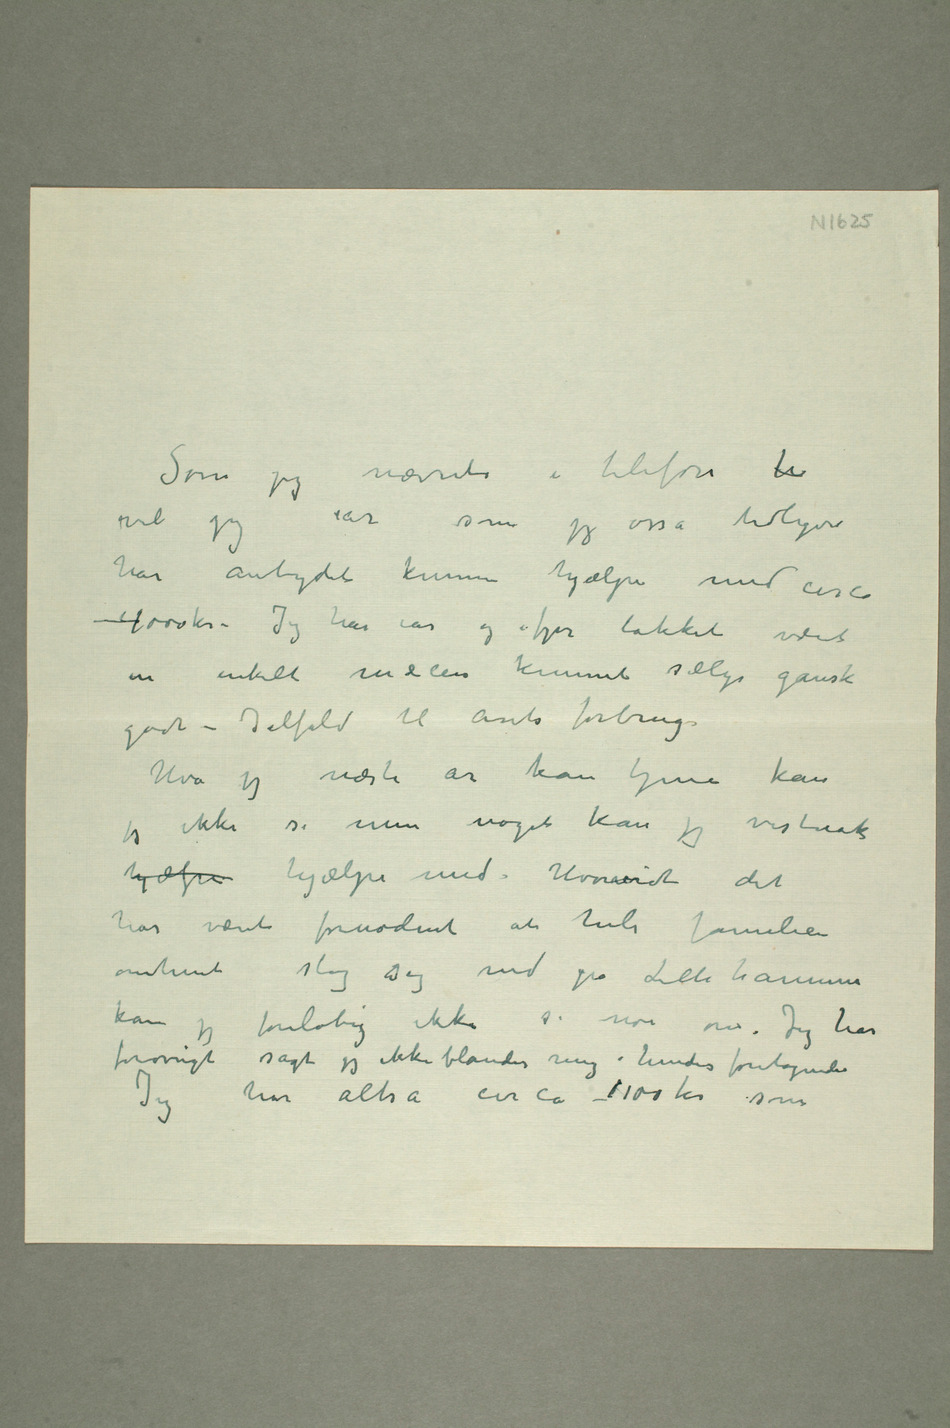 N1625
Som jeg nævnte i telefon
vil jeg iår som jeg osså tidligere
har antydet kunne hjælpe med circa
1000 kr – Jeg har iår og ifjor takket være
en enkelt mæcen kunnet sælge ganske
godt – Ialfald til årets forbrug
Hva jeg næste år kan tjene kan
jeg ikke se men noget kan jeg vistnok
hjælpe hjælpe med – Hvorvidt det
har vært fornødent at hele familien
omtrent slog seg ned på Lillehammer
kan jeg foreløbig ikke si noe om. Jeg har
forøvrigt sagt jeg ikke blander mig i hendes foretagender
Jeg har altså circa 1100 kr som